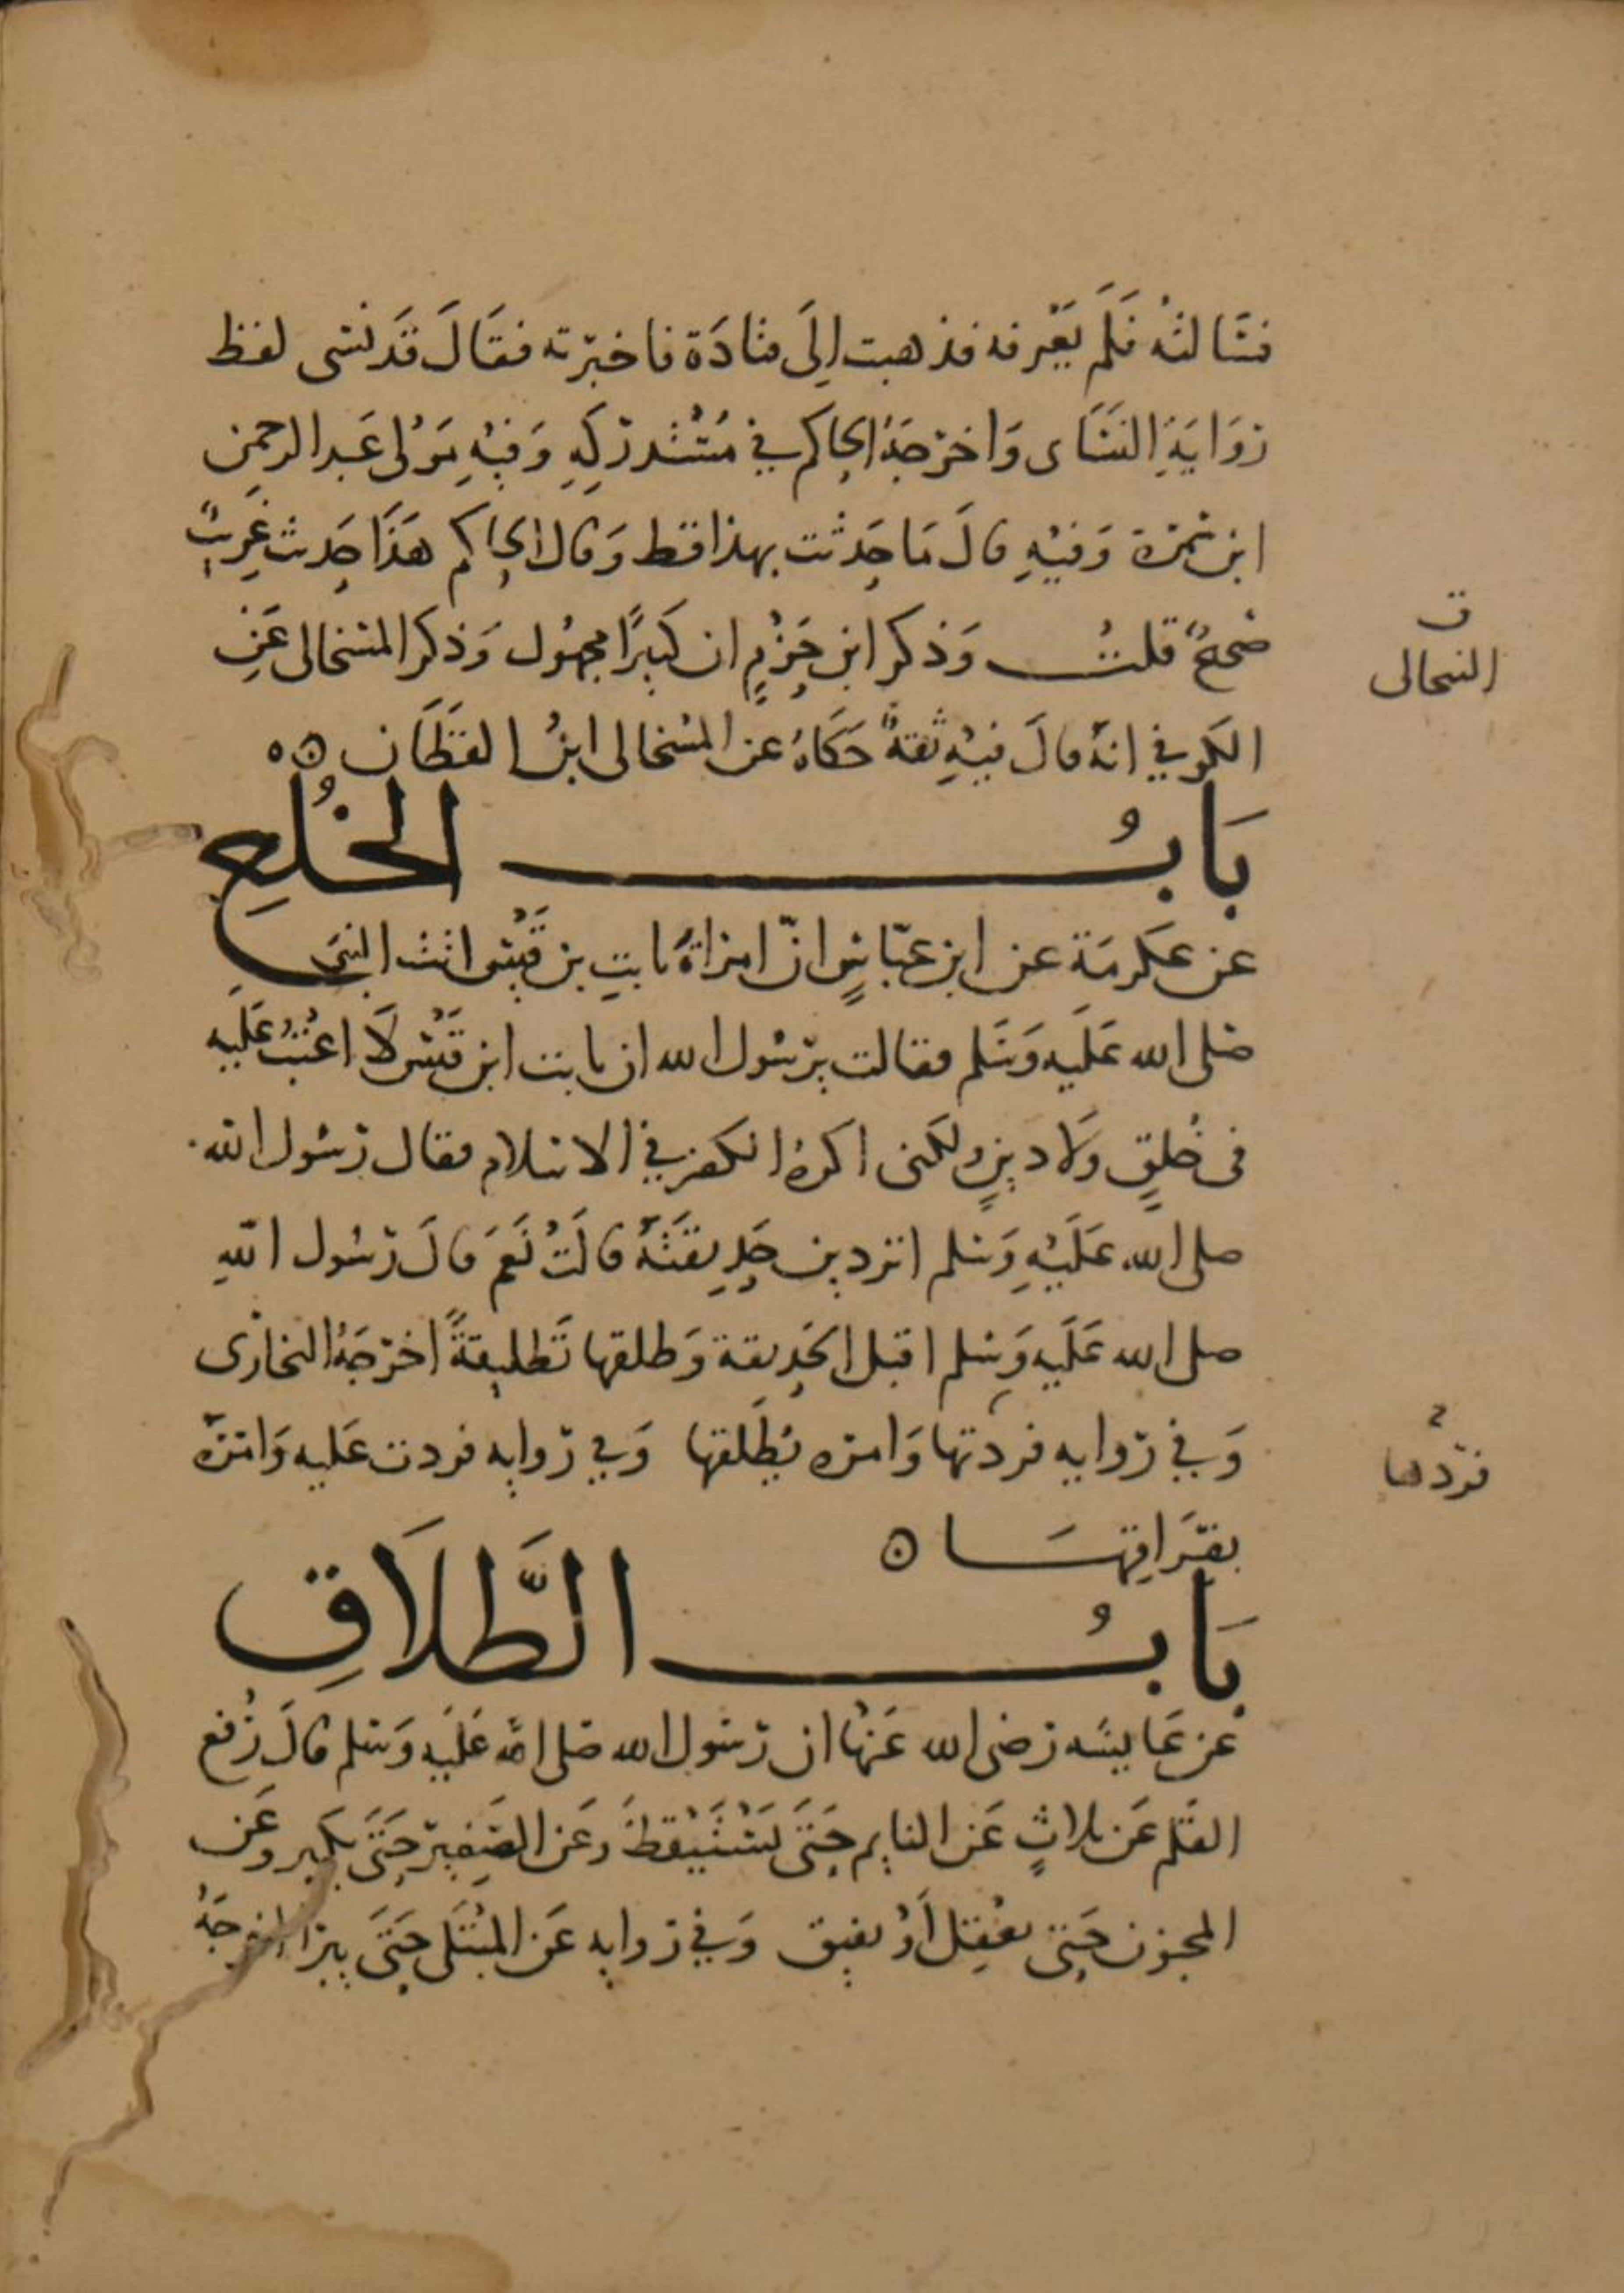 فسَالتُه فَلَم يَعْرفه فذهبت الِىَ قتادَة فاخبرته فقَالَ قَد نسى لفظ
روَايَةِ النسَاى وَاخرجَهُ الحاكم في مُسْتَدركِهِ وَفيْهِ مَوْلى عَبد الرحمن
ابن سَمرة وَفيْهِ قالَ مَا حَدثت بهذا قط وَقال الحاكم هَذَا حَديث غَرِيبٌ
صَحيحٌ قلتُ وَذكر ابن حَزْمٍ ان كثيرًا مجهُول وَذكر المنتخالى عَنِ
الكوفي انهُ قالَ فيْهِ ثقةٌ حَكَاهُ عن المنتخالى ابنُ القَطَان ه ه
بَابُ الخُلعِ
عن عكرمَة عن ابن عبّاسٍ انّ امراةَ ثابتِ بن قَيْسٍ اتت النبىَ
صَلى الله عَلَيه وَسَلم فقالت يرسُول الله ان ثابت ابن قَيْس لَا اعْتبُ عَلَيه
فى خُلقٍ وَلا دينٍ ولكنى اكرهُ الكفر في الاسلام فقال رسُول الله
صلى الله عَلَيْهِ وَسلم اتردين حَدِيقَتَهُ قالَتْ نَعَمَ قالَ رسُول اللهِ
صلى الله عَلَيه وَسلم اقبل الحَدِيقة وَطلقها تَطليقةً اخرجَهُ البخارى
وَفي روايه فردتها وَامره يُطَلقها وَفي روايه فردت عَليه وَامرَهُ
بفرَاقِهَا ه
بَابُ الطَّلَاقِ
عَن عَايشَه رَضى الله عَنْهَا ان رسُول الله صَلى الله عَلَيه وَسَلم قالَ رُفع
القَلم عَن ثلاثٍ عَن النايم حَتىَ يَسْتَيْقظَ وَعَن الصَغِير حَتَى يكبر وعَن
المجنون حَتى يعْقِل أوْ يفيق وَفي روايه عَن المبْتَلى حَتَى يبرا اخرجَهُ
ن
النتحالى
فردها